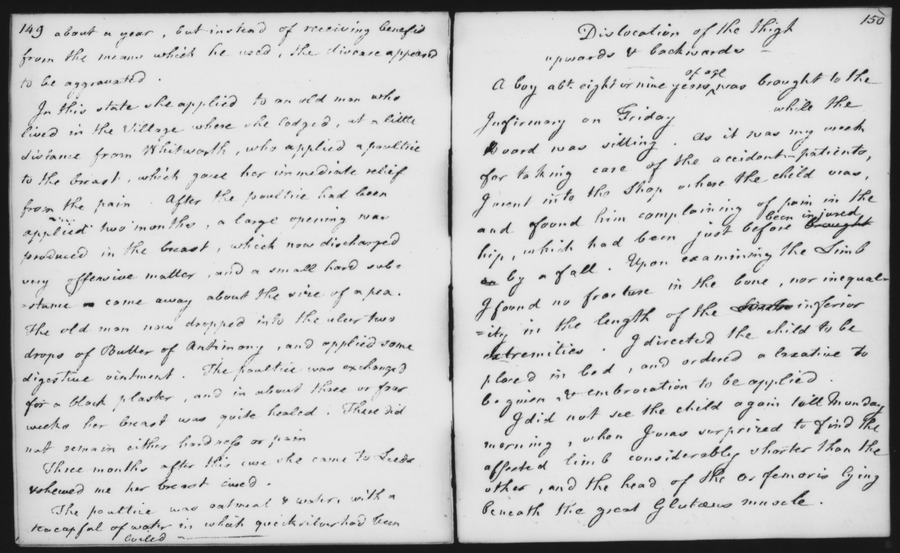 149 about a year, but instead of receiving benefit
from the means which he used, the disease appeared
to be aggravated.
In this state she applied to an old man who
lived in the Village where she lodged, at a little
distance from Whitworth, who applied a poultice
to the breast, which gave her immediate relief
from the pain. After the poultice had been
applied two months, a large opening was
produced in the breast, which now discharged
very offensive matter, and a small hard sub=
=stance came away about the size of a pea.
The old man now dropped into the ulcer two
drops of Butter of Antimony, and applied some
digestive ointment. The poultice was exchanged
for a black plaster, and in about three or four
weeks her breast was quite healed. There did
not remain either hardness or pain
Three months after this cure she came to Leeds
& shewed me her breast cured.
The poultice was oatmeal & water, with a
teacupful of water in which quicksilver had been
boiled
150
Dislocation of the Thigh
upwards & backwards
of age
A boy abt. eight or nine years was brought to the
Infirmary on Friday while the
Board was sitting. As it was my week
for taking care of the accident-patients,
I went into the Shop where the child was,
and found him complaining of pain in the
been injured
hip, which had been just before brought
by a fall. Upon examining the Limb
I found no fracture in the bone, nor inequal=
=ity in the length of the inferior
extremities. I directed the child to be
placed in bed, and ordered a laxative to
be given & embrocation to be applied.
I did not see the child again till Monday
morning, when I was surprized to find the
affected limb considerably shorter than the
other, and the head of the Os femoris lying
beneath the great Glutæus muscle.